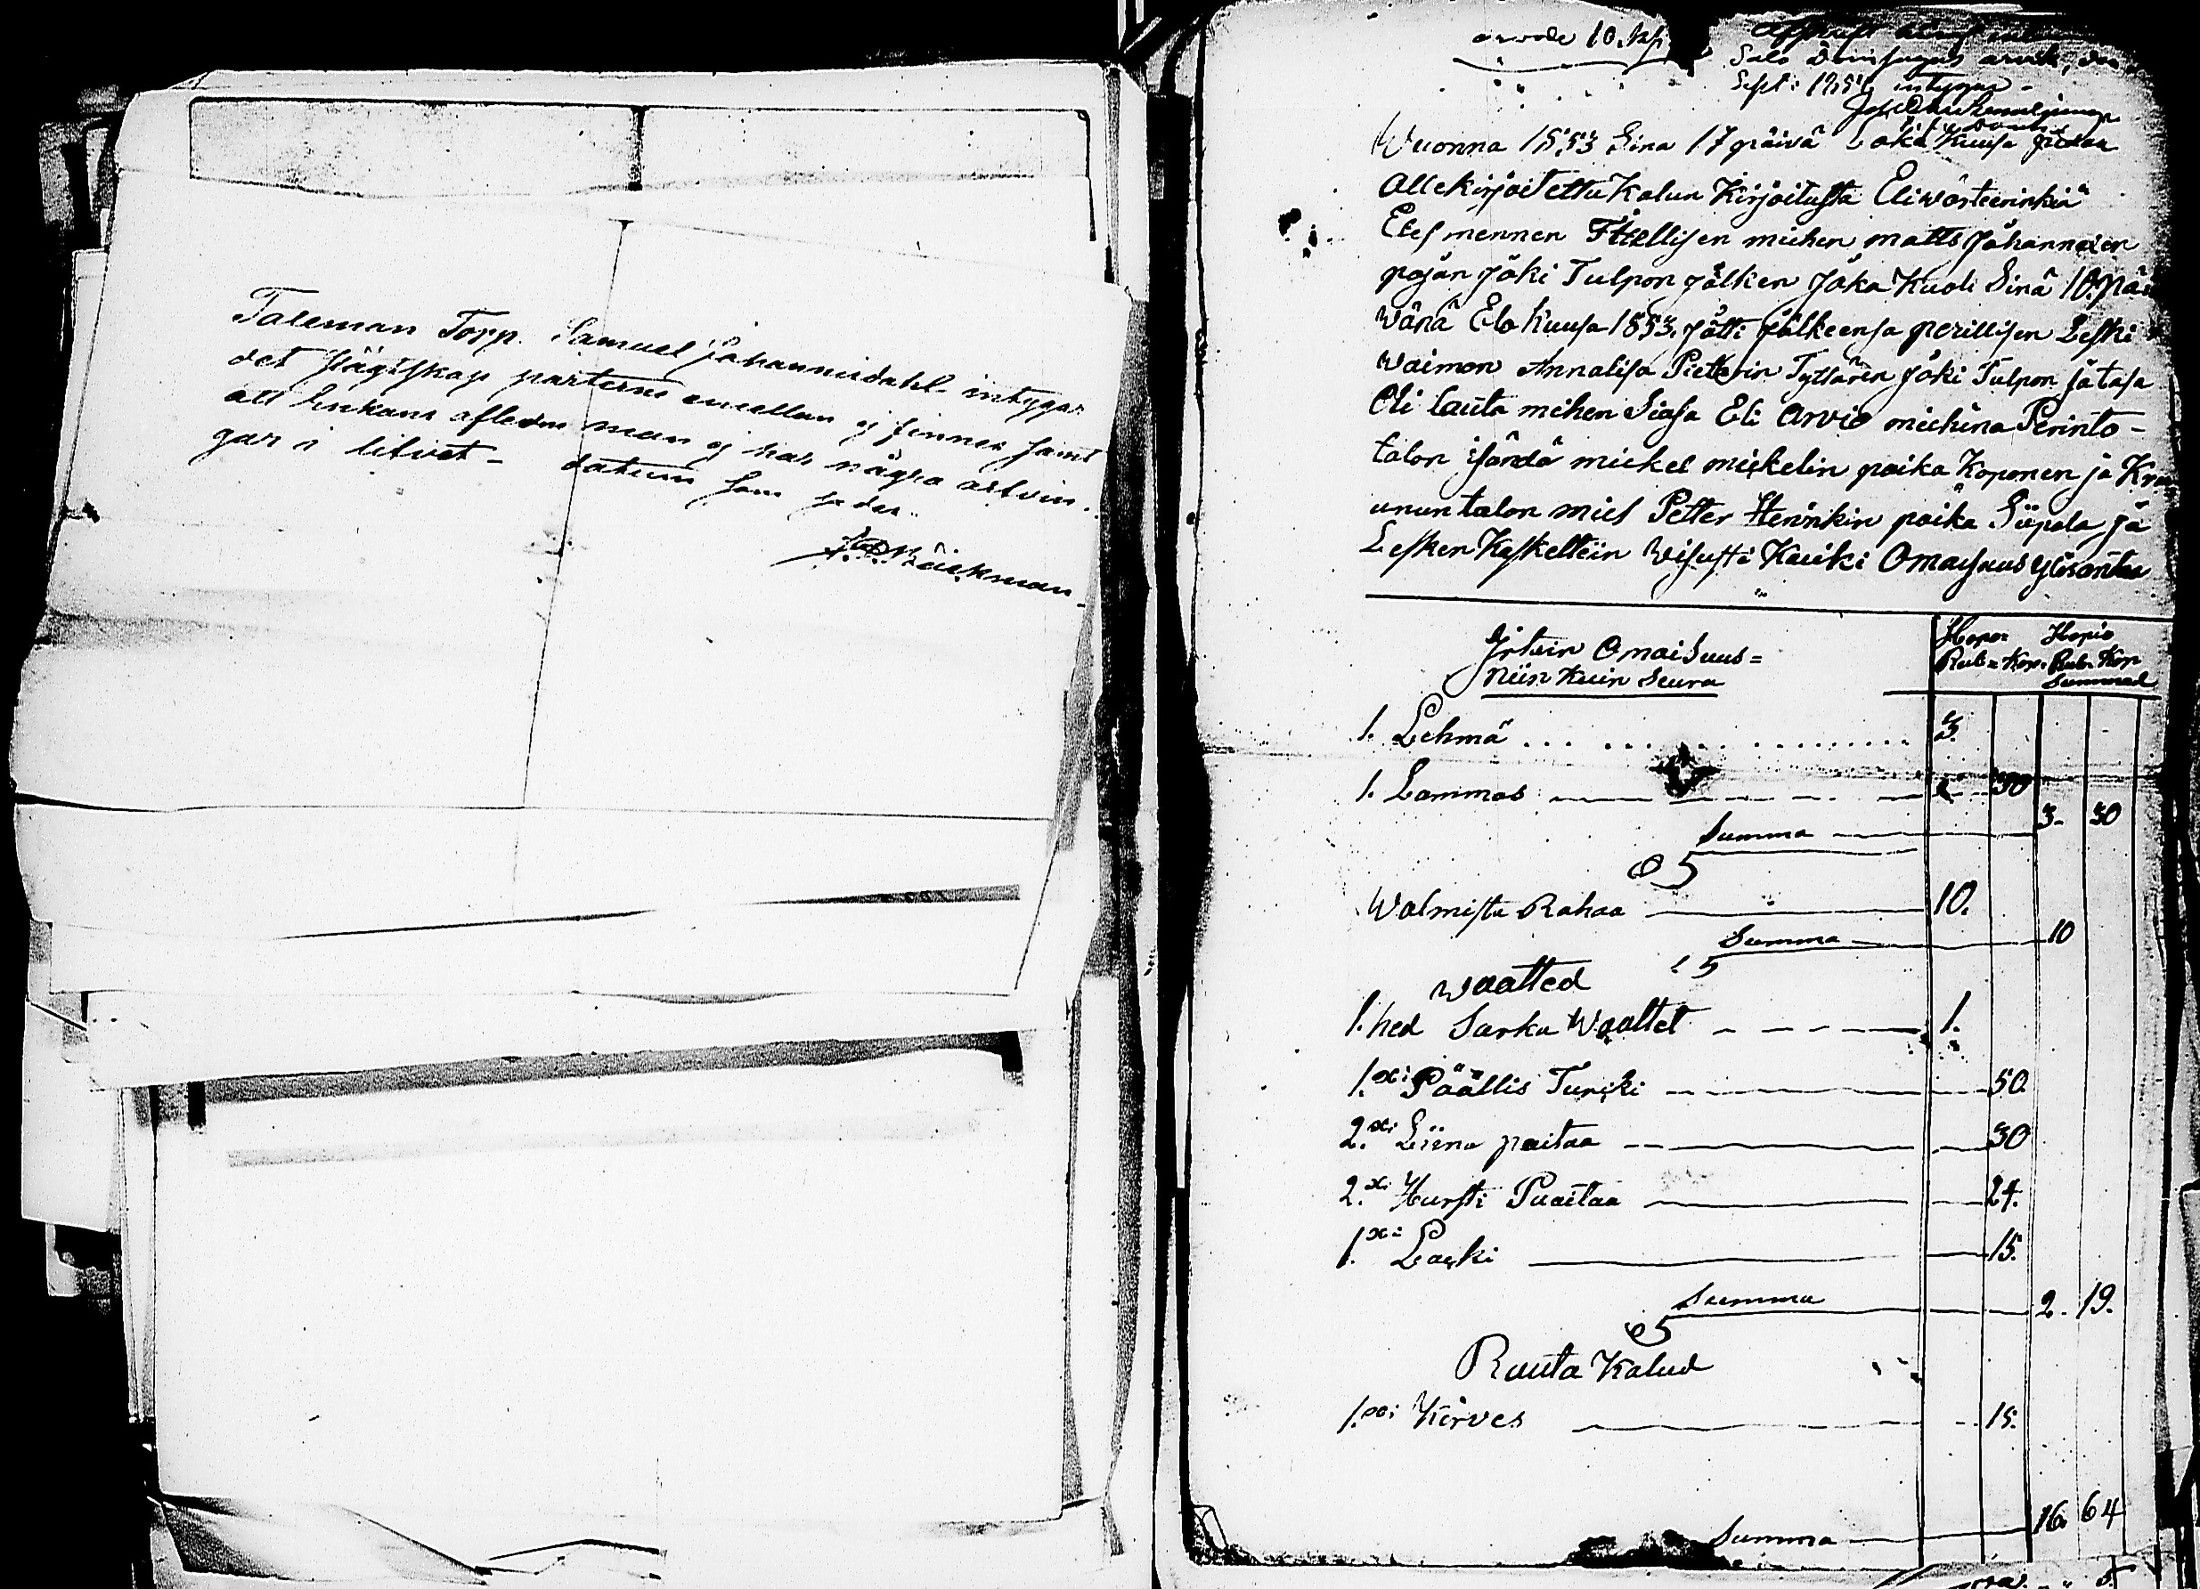 Taleman Torp. Samuel Johannisdahl intygar
det slägtskap parterne emellan ej finnes samt
att Enkans afledne man ej har några arfvin-
gar i lifvet - datum som sedan.
Bäckman
arvode 10. kp.
Sept: 1854 intygar -
Wuonna 1853 Sina 17 päivä Loka Kuusa
Allekirjoitettu Kalun Kirjoitusta Eliwärteerinkiä
Edesmennen Itsellisen miehen matts Johannexen
pojan Joki Tulpon jälken Joka Kuoli Sinä 10 päi
wänä Elo Kuusa 1853. Jätti jälkeensa perillisen Leski
waimon Annalisa Pietterin Tyttären Joki Tulpon jätasa
Oli lauta mihen Siasa Eli Arvio miehina Perinto-
talon isändä mickel mickelin poika Koponen ja Kru
unun talon mies Petter Heinrikin poika Siipola ja
Lesken Keskettein wisusti Kaiki Omaisuus
Jrtain Omaisuus=
Niin Kuin Seura
Hopo= Hopia
Rub= Kop. Rub. Kop
Summad
1. Lehmä 3.
1. Lammas 30
Summa 3- 30
Walmista Rahaa 10.
Summa 10
waatted
1. hed Sarka Waattet 1.
1. xi Päällis Turcki 50
2. xi Liina paitaa 30
2. xi Hursti Puaitaa 24.
1. xi Lacki 15.
Summa 2. 19.
Rauta Kalud
1. xi Kirves 15.
Summa 16. 64